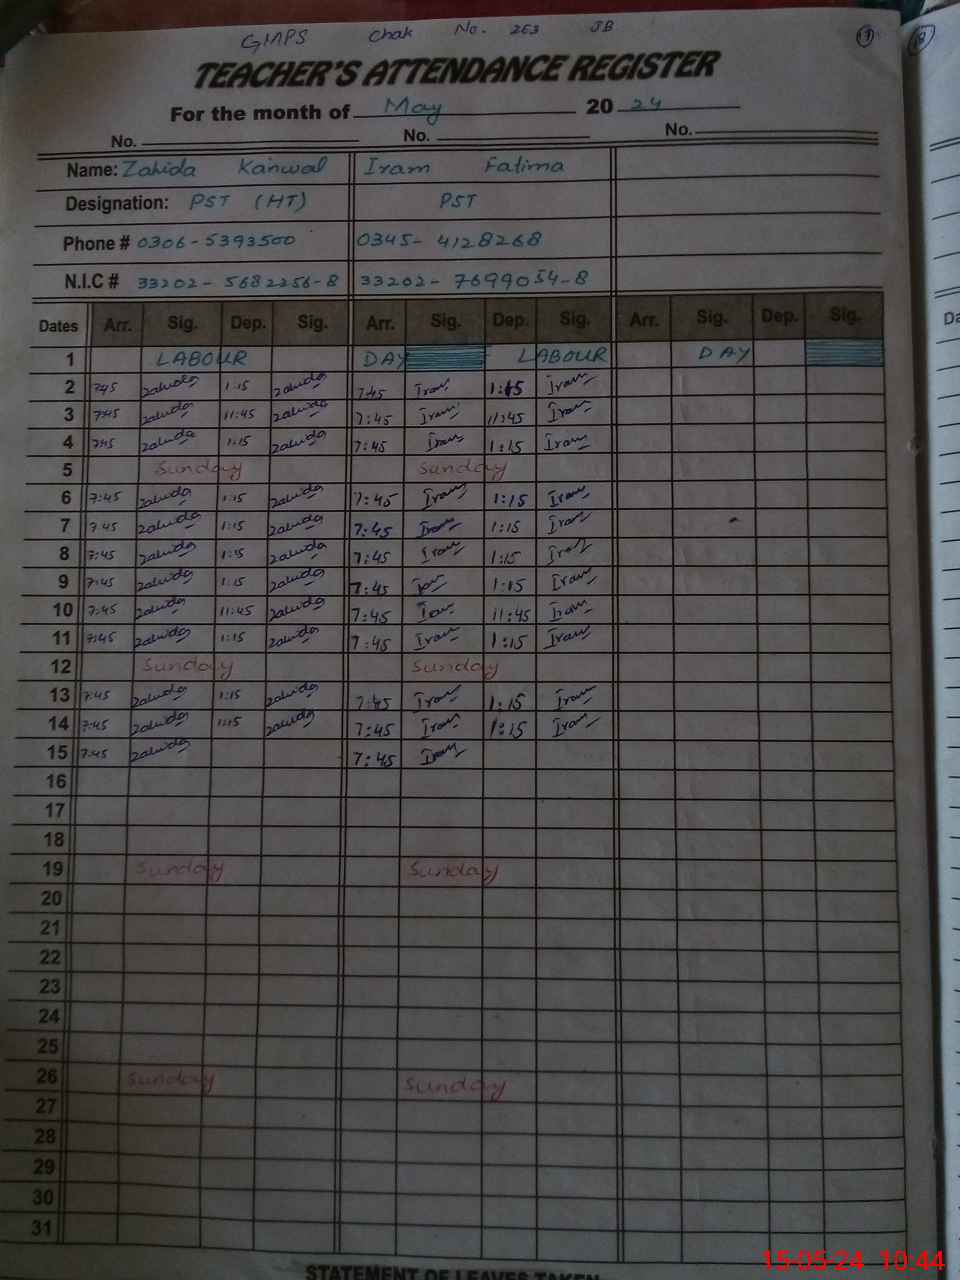 GMPS Chak No. 263 JB 17 18
TEACHER'S ATTENDANCE REGISTER
For the month of May 20 24
No. No. No.
Name: Zahida Kanwal Iram Fatima
Designation: PST (HT) PST
Phone # 0306-5393500 0345-4128268
N.I.C # 33202-5682256-8 33202-7699054-8
Dates Arr. Sig. Dep. Sig. Arr. Sig. Dep. Sig. Arr. Sig. Dep. Sig. Da
1 LABOUR DAY LABOUR DAY
2 7:45 Zahida 1:15 Zahida 7:45 Iram 1:15 Iram
3 7:45 Zahida 11:45 Zahida 7:45 Iram 11:45 Iram
4 7:45 Zahida 1:15 Zahida 7:45 Iram 1:15 Iram
5 Sunday Sunday
6 7:45 Zahida 1:15 Zahida 7:45 Iram 1:15 Iram
7 7:45 Zahida 1:15 Zahida 7:45 Iram 1:15 Iram
8 7:45 Zahida 1:15 Zahida 7:45 Iram 1:15 Iram
9 7:45 Zahida 1:15 Zahida 7:45 Iram 1:15 Iram
10 7:45 Zahida 11:45 Zahida 7:45 Iram 11:45 Iram
11 7:45 Zahida 1:15 Zahida 7:45 Iram 1:15 Iram
12 Sunday Sunday
13 7:45 Zahida 1:15 Zahida 7:45 Iram 1:15 Iram
14 7:45 Zahida 1:15 Zahida 7:45 Iram 1:15 Iram
15 7:45 Zahida 7:45 Iram
16
17
18
19 Sunday Sunday
20
21
22
23
24
25
26 Sunday Sunday
27
28
29
30
31
STATEMENT OF LEAVES TAKEN
15-05-24 10:44